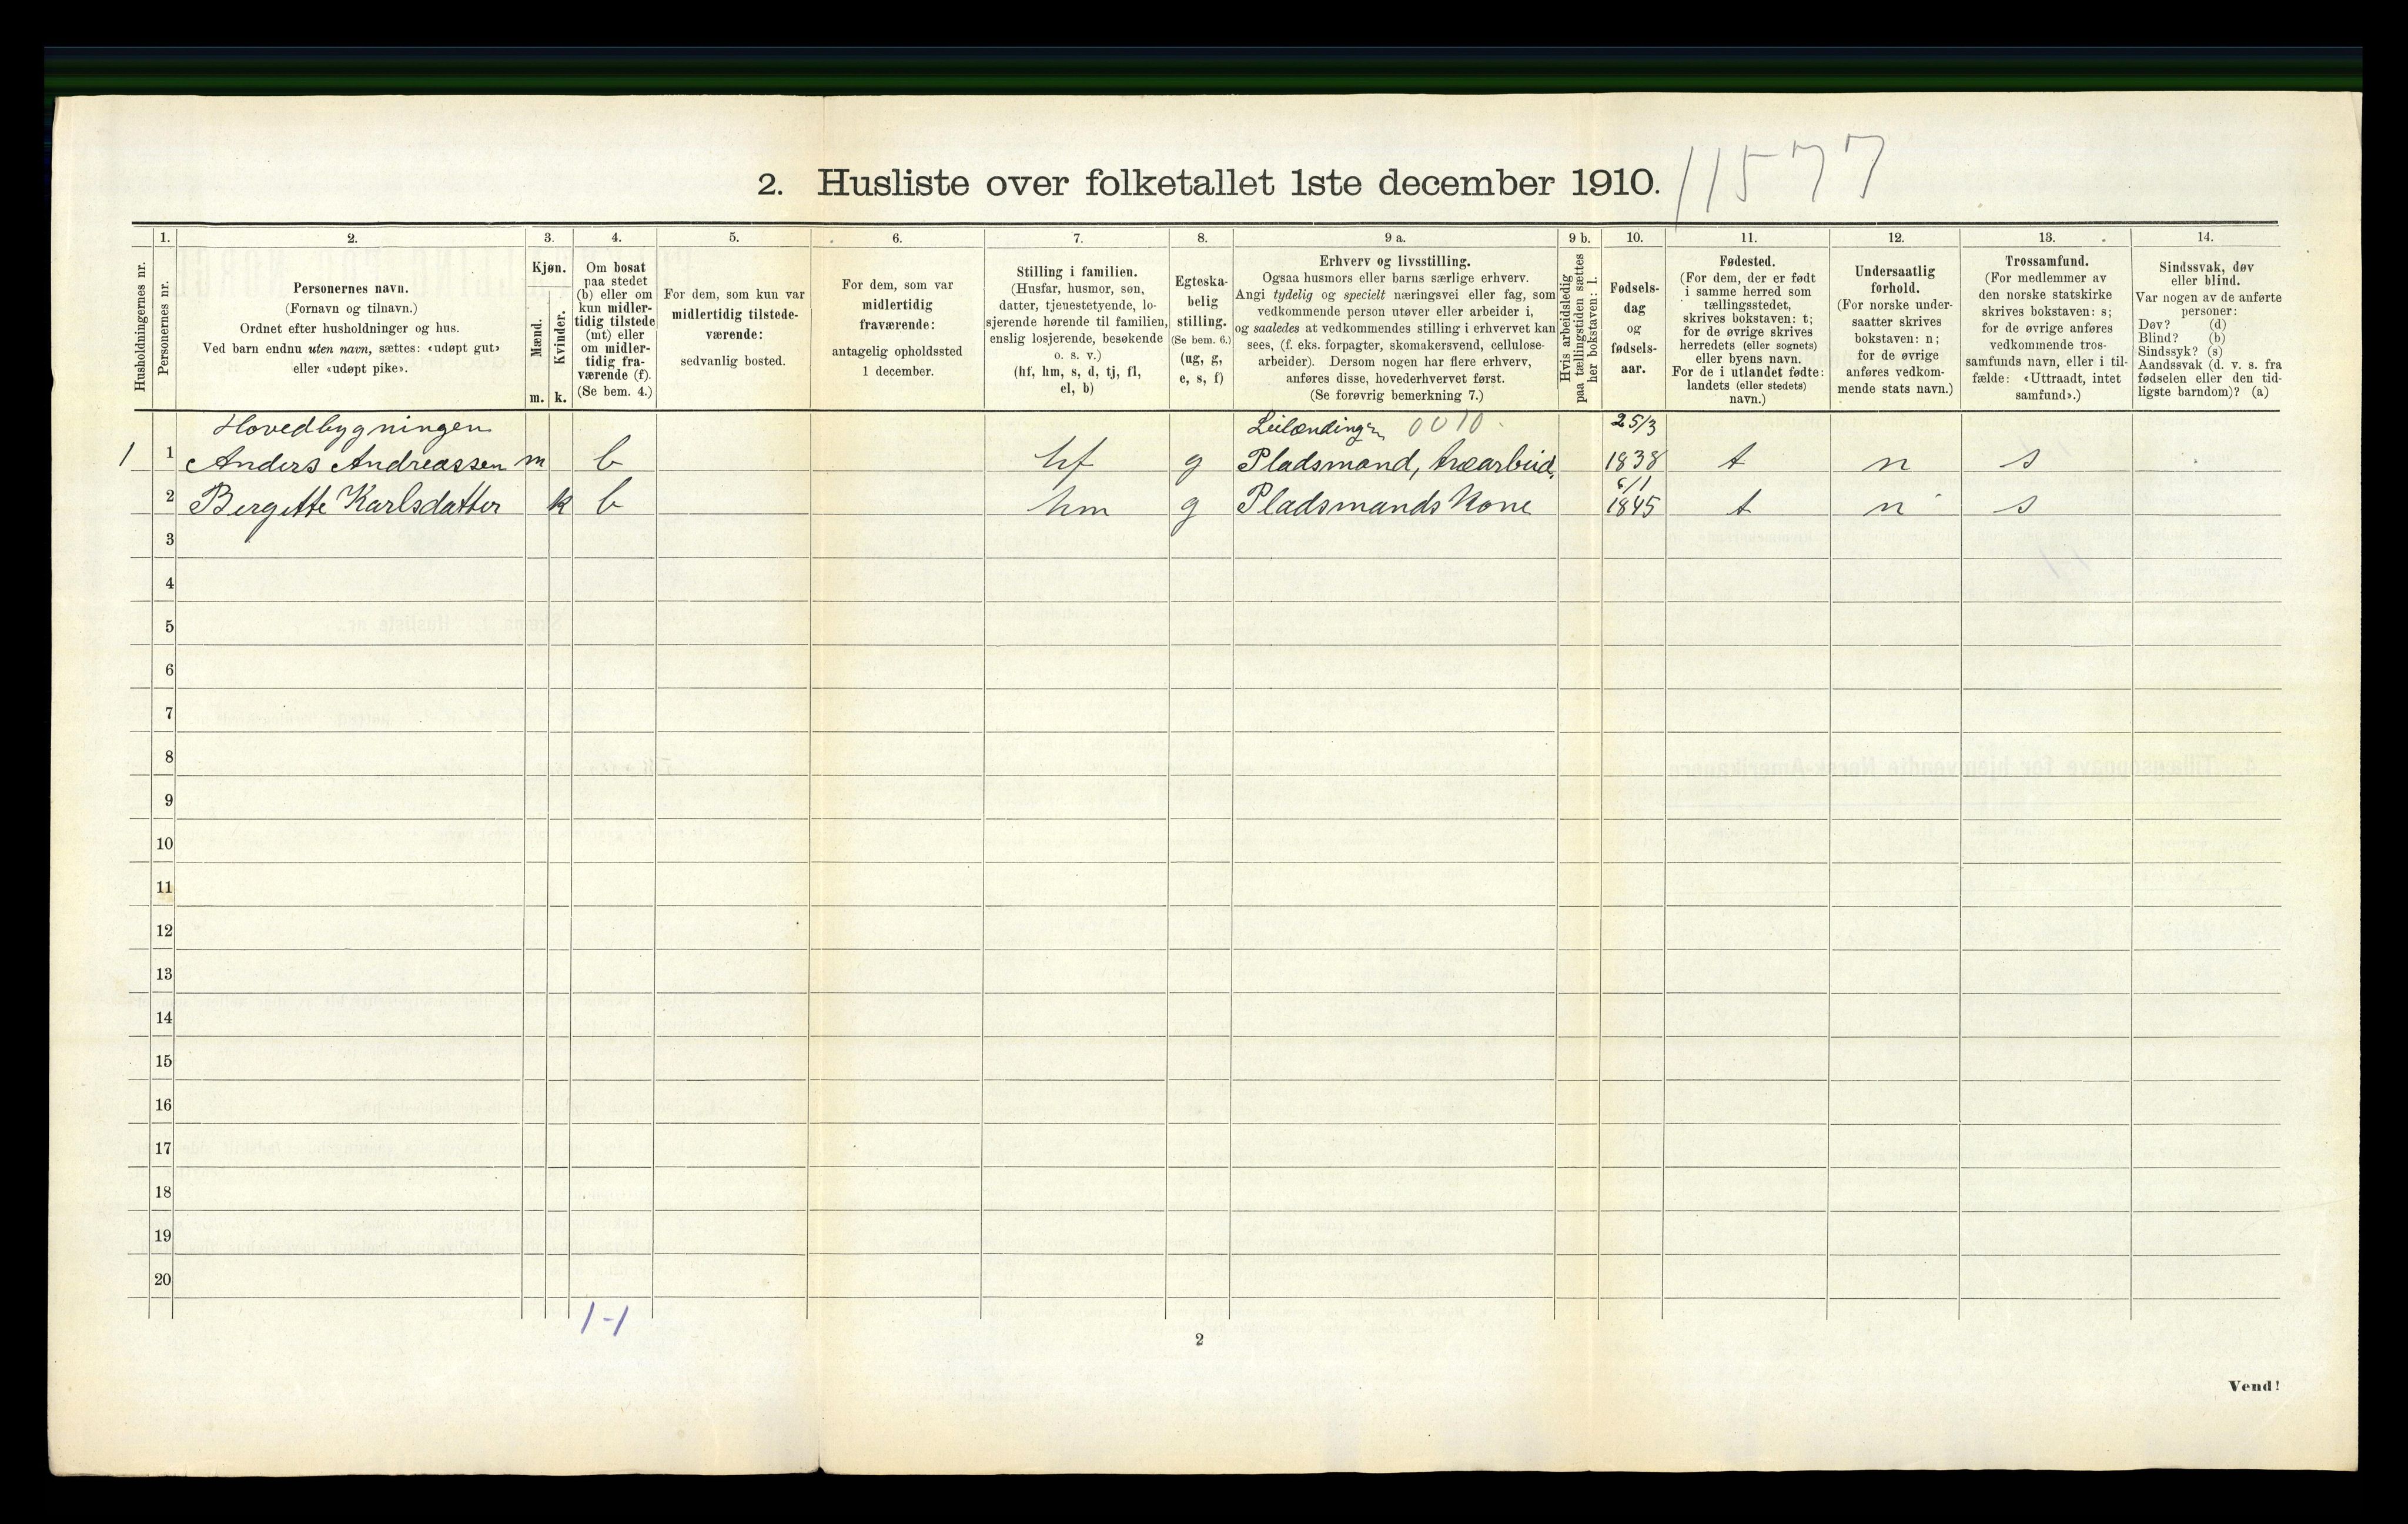 2. Husliste over folketallet 1ste december 1910. 11577
Husholdningernes nr.
1.
Personernes nr.
2.
Personernes navn.
(Fornavn og tilnavn.)
Ordnet efter husholdninger og hus.
Ved barn endnu uten navn, sættes: «udøpt gut»
eller «udøpt pike».
3.
Kjøn.
Mænd.
m.
Kvinder.
k.
4.
Om bosat
paa stedet
(b) eller om
kun midler-
tidig tilstede
(mt) eller
om midler-
tidig fra-
værende (f).
(Se bem. 4.)
5.
For dem, som kun var
midlertidig tilstede-
værende:
sedvanlig bosted.
6.
For dem, som var
midlertidig
fraværende:
antagelig opholdssted
1 december.
7.
Stilling i familien.
(Husfar, husmor, søn,
datter, tjenestetyende, lo-
sjerende hørende til familien,
enslig losjerende, besøkende
o. s. v.)
(hf, hm, s, d, tj, fl,
el, b)
8.
Egteska-
belig
stilling.
(Se bem. 6.)
(ug, g,
e, s, f)
9 a.
Erhverv og livsstilling.
Ogsaa husmors eller barns særlige erhverv.
Angi tydelig og specielt næringsvei eller fag, som
vedkommende person utøver eller arbeider i,
og saaledes at vedkommendes stilling i erhvervet kan
sees, (f. eks. forpagter, skomakersvend, cellulose-
arbeider). Dersom nogen har flere erhverv,
anføres disse, hovederhvervet først.
(Se forøvrig bemerkning 7.)
9 b.
Hvis arbeidsledig
paa tællingstiden sættes
her bokstaven: l.
10.
Fødsels-
dag
og
fødsels-
aar.
11.
Fødested.
(For dem, der er født
i samme herred som
tællingsstedet,
skrives bokstaven: t;
for de øvrige skrives
herredets (eller sognets)
eller byens navn.
For de i utlandet fødte:
landets (eller stedets)
navn.)
12.
Undersaatlig
forhold.
(For norske under-
saatter skrives
bokstaven: n;
for de øvrige
anføres vedkom-
mende stats navn.)
13.
Trossamfund.
(For medlemmer av
den norske statskirke
skrives bokstaven: s;
for de øvrige anføres
vedkommende tros-
samfunds navn, eller i til-
fælde: «Uttraadt, intet
samfund».)
14.
Sindssvak, døv
eller blind.
Var nogen av de anførte
personer:
Døv? (d)
Blind? (b)
Sindssyk? (s)
Aandssvak (d. v. s. fra
fødselen eller den tid-
ligste barndom)? (a)
Hovedbygningen Leilændinger 0010 25/3
1 1 Anders Andreassen m b hf g Pladsmand, træarbeid. 1838 t n s
6/1
2 Bergitte Karlsdatter k b hm g Pladsmands Kone 1845 t n s
3
4
5
6
7
8
9
10
11
12
13
14
15
16
17
18
19
20
1-1
2
Vend!